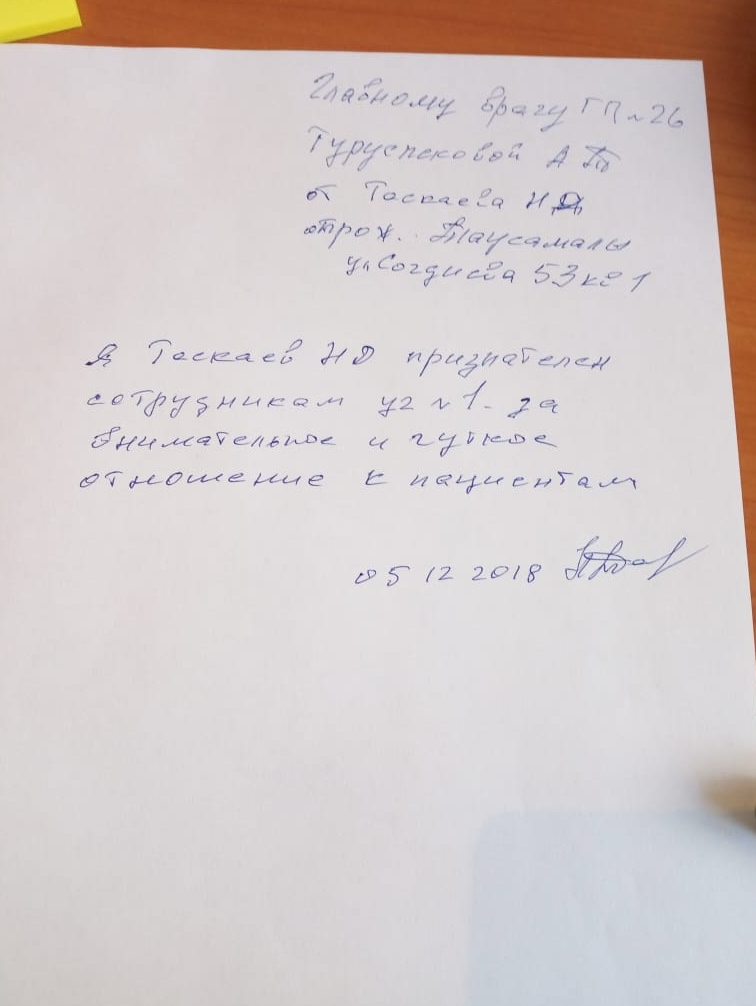 Главному врачу ГП №26
Туруспековой А
от Таскаева Н.Д.
прож. Таусамалы
ул Согдиева 53 кв 1
Я Таскаев НД признателен
сотрудникам уг №1. за
внимательное и чуткое
отношение к пациентам
05 12 2018